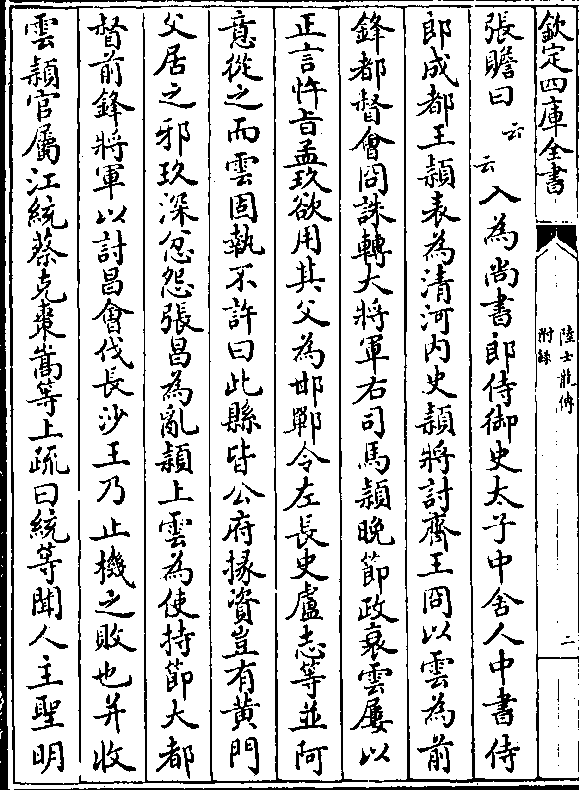 欽定四庫全書
陸士龍傳
附錄
二
張贍曰云云入為尚書郎侍御史太子中舍人中書侍
郎成都王頴表為清河内史頴將討齊王冏以雲為前
鋒都督會冏誅轉大將軍右司馬頴晚節政衰雲屢以
正言忤旨孟玖欲用其父為邯鄲令左長史盧志等並阿
意從之而雲固執不許曰此縣皆公府掾資豈有黄門
父居之邪玖深忿怨張昌為亂頴上雲為使持節大都
督前鋒將軍以討昌會伐長沙王乃止機之敗也并收
雲頴官屬江統蔡克棗嵩等上疏曰統等聞人主聖明